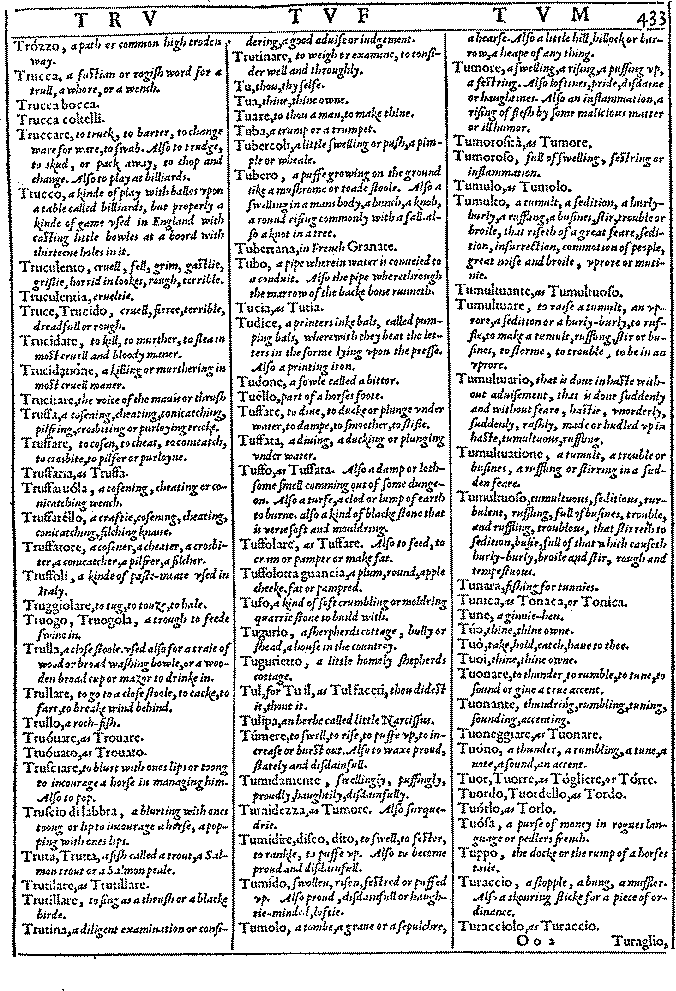 T R V
T V F
T V M
433
Trózzo, a path or common high troden
way.
Trucca, a fustian or rogish word for a
trull, a whore, or a wench.
Trucca bocca.
Trucca cokelli.
Truccare, to truck, to barter, to change
ware for ware, to swab. Also to trudge,
to skud, or pack away, to chop and
change. Also to play at billiards.
Trucco, a kinde of play with balles vpon
a table called billiards, but properly a
kinde of game vsed in England with
casting little bowles at a boord with
thirteene holes in it.
Truculento, cruell, fell, grim, gastlie,
grislie, horrid in lookes, rough, terrible.
Truculentia, crueltie.
Truce, Trucido, cruell, fierce, terrible,
dreadfull or rough.
Trucidare, to kill, to murther, to slea in
most cruell and bloody maner.
Trucidatione, a killing or murthering in
most cruell maner.
Trucitare, the voice of the mauis or thrush
Truffa, a cosening, cheating, conicatching,
pilfring, crosbiting or purloying trecke.
Truffare, to cosen, to cheat, to conicatch,
to crosbite, to pilfer or purloyne.
Truffaria, as Truffa.
Truffaruóla, a cosening, cheating or co-
nicatching wench.
Truffarello, a craftie, cosening, cheating,
conicatching, filching knaue.
Truffatore, a cosiner, a cheater, a crosbi-
ter, a conicatcher, a pilfrer, a filcher.
Truffoli, a kinde of paste-meate vsed in
Italy.
Truggiolare, to tug, to touze, to hale.
Truogo, Truogola, a trough to feede
swine in.
Trulla, a close stoole. vsed also for a traie of
wood or broad washing bowle, or a woo-
den broad cup or mazor to drinke in.
Trullare, to go to a close stoole, to cacke, to
fart, to breake wind behind.
Trullo, a roch-fish.
Truóuare, as Trouare.
Truóuato, as Trouato.
Trusciare, to blurt with ones lips or toong
to incourage a horse in managing him.
Also to pop.
Truscio di labbra, a blurting with ones
toong or lip to incourage a horse, a pop-
ping with ones lips.
Truta, Trutta, a fish called a trout, a Sal-
mon trout or a Salmon peale.
Trutilare, as Trutillare.
Trutillare, to sing as a thrush or a blacke
birde.
Trutina, a diligent examination or consi-
dering, a good aduise or iudgement.
Trutinare, to weigh or examine, to consi-
der well and throughly.
Tu, thou, thy selfe.
Tua, thine, thine owne.
Tuare, to thou a man, to make thine.
Tuba, a trump or a trumpet.
Tubercoli, a little swelling or push, a pim-
ple or wheale.
Tubero, a puffe growing on the ground
like a mushrome or toade stoole. Also a
swelling in a mans body, a bunch, a knob,
a round rising commonly with a fall. al-
so a knot in a tree.
Tuberrana, in French Granate.
Tubo, a pipe wherein water is conueied to
a conduit. Also the pipe wherethrough
the marrow of the backe bone runneth.
Tucia, as Tutia.
Tudice, a printers inke bals, called pum-
ping bals, wherewith they beat the let-
ters in the forme lying vpon the presse.
Also a printing iron.
Tudone, a fowle called a bittor.
Tuello, part of a horses foote.
Tuffare, to diue, to ducke or plunge vnder
water, to dampe, to smoother, to stifle.
Tuffata, a diuing, a ducking or plunging
vnder water.
Tuffo, as Tuffata. Also a damp or loth-
some smell comming out of some dunge-
on. Also a turfe, a clod or lump of earth
to burne. also a kind of blacke stone that
is verie soft and mouldring.
Tuffolare, as Tuffare. Also to feed, to
crom or pamper or make fat.
Tuffolotta guancia, a plum, round, apple
cheeke, fat or pampred.
Tufo, a kind of soft crumbling or moldring
quarrie stone to build with.
Tugurio, a shepherds cottage, bully or
shead, a house in the countrey.
Tugurietto, a little homely shepherds
cottage.
Tul, for Tu il, as Tul faccti, thou didest
it, thou it.
Tulipa, an herbe called little Narcissus.
Túmere, to swell, to rise, to puffe vp, to in-
crease or burst out. Also to waxe proud,
stately and disdainfull.
Tumidamente, swellingly, puffingly,
proudly, haughtily, disdainfully.
Tumidezza, as Tumore. Also surque-
drie.
Tumidire, disco, dito, to swell, to fester,
to rankle, to puffe vp. Also to become
proud and disdainfull.
Tumido, swollen, risen, festred or puffed
vp. Also proud, disdainfull or haugh-
tie-minded, loftie.
Tumolo, a tombe, a graue or a sepulchre,
a hearse. Also a little hill, hillock or bur-
row, a heape of any thing.
Tumore, a swelling, a rising, a puffing vp,
a festring. Also loftines, pride, disdaine
or haughtines. Also an inflammation, a
rising of flesh by some malicious matter
or ill humor.
Tumorosità, as Tumore.
Tumoroso, full of swelling, festring or
inflammation.
Tumulo, as Tumolo.
Tumulto, a tumult, a sedition, a hurly-
burly, a ruffling, a busines, stir, trouble or
broile, that riseth of a great feare, sedi-
tion, insurrection, commotion of people,
great noise and broile, vprore or muti-
nie.
Tumultuante, as Tumultuoso.
Tumultuare, to raise a tumult, an vp-
rore, a sedition or a hurly-burly, to ruf-
fle, to make a tumult, ruffling, stir or bu-
sines, to storme, to trouble, to be in an
vprore.
Tumultuario, that is done in haste with-
out aduisement, that is done suddenly
and without feare, hastie, vnorderly,
suddenly, rashly, made or hudled vp in
haste, tumultuous, ruffling.
Tumultuatione, a tumult, a trouble or
busines, a ruffling or stirring in a sud-
den feare.
Tumultuoso, tumultuous, seditious, tur-
bulent, ruffling, full of busines, trouble,
and ruffling, troublous, that stirreth to
sedition, busie, full of that which causeth
hurly-burly, broile and stir, rough and
tempestuous.
Tunara, fishing for tunnies.
Tunica, as Tonaca, or Tonica.
Tune, a ginnie-hen.
Túo, thine, thine owne.
Tuó, take, hold, catch, haue to thee.
Tuoi, thine, thine owne.
Tuonare, to thunder, to rumble, to tune, to
sound or giue a true accent.
Tuonante, thundring, rumbling, tuning,
sounding, accenting.
Tuoneggiare, as Tuonare.
Tuóno, a thunder, a rumbling, a tune, a
note, a sound, an accent.
Tuor, Tuorre, as Tógliere, or Tórre.
Tuordo, Tuordello, as Tordo.
Tuórlo, as Torlo.
Tuósa, a purse of money in rogues lan-
guage or pedlers french.
Tuppo, the docke or the rump of a horses
taile.
Turaccio, a stopple, a bung, a muffler.
Also a skouring sticke for a piece of or-
dinance.
Turacciolo, as Turaccio.
O o 2
Turaglio,